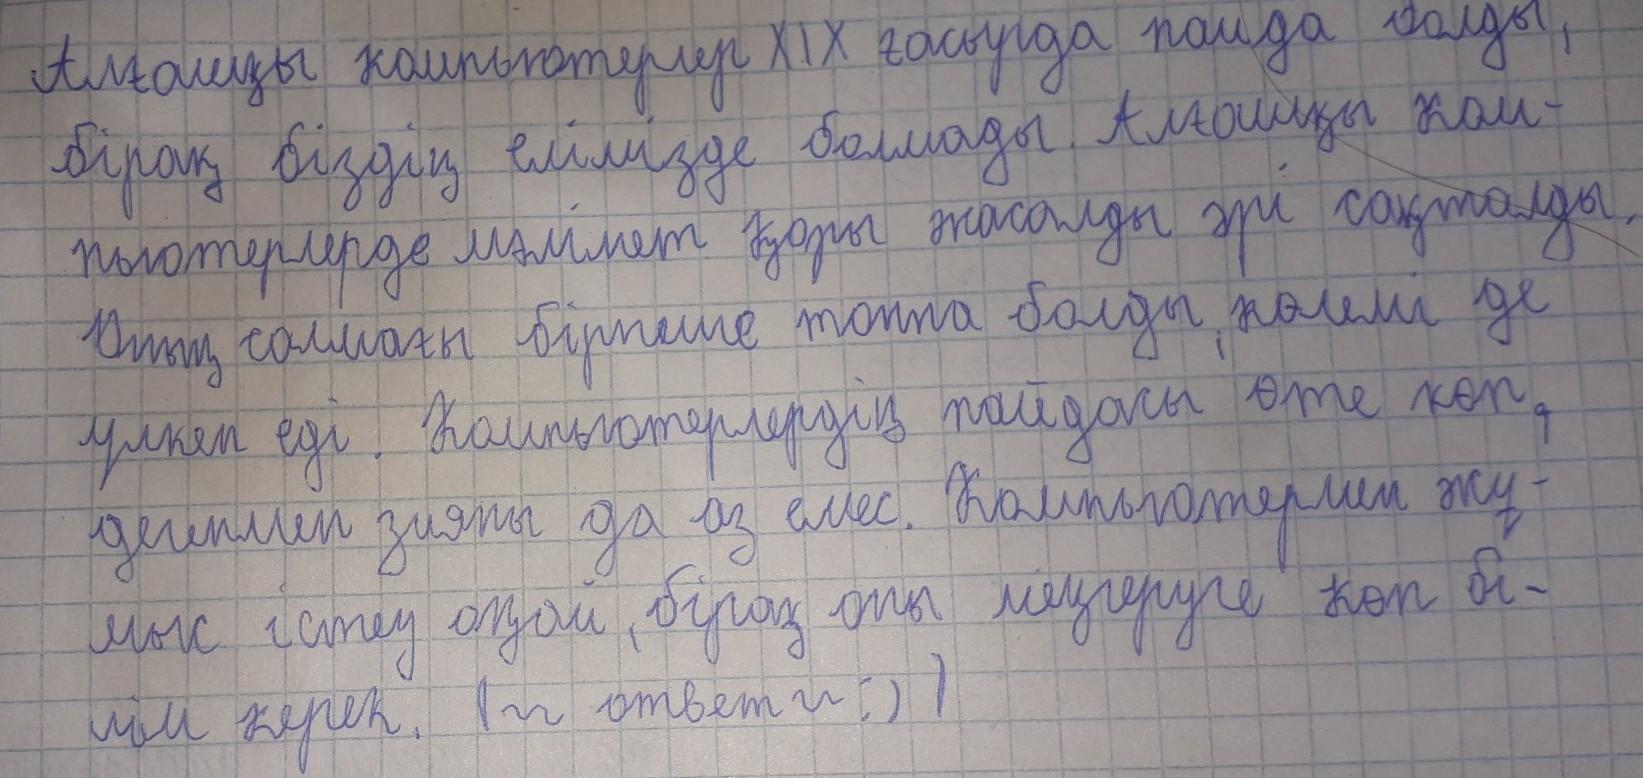 Алғашқы компьютерлер XIX ғасырда пайда болды,
бірақ біздің елімізде болмады. Алғашқы ком-
пьютерлерде мәлімет қоры жасалды әрі сақталды.
Оның салмағы бірнеше тонна болды, көлемі де
үлкен еді. Компьютерлердің пайдасы өте көп,
дегенмен зияны да аз емес. Компьютермен жұ-
мыс істеу оңай, бірақ оны меңгеруге көп бі-
лім керек. (~ ответ ~ :) )